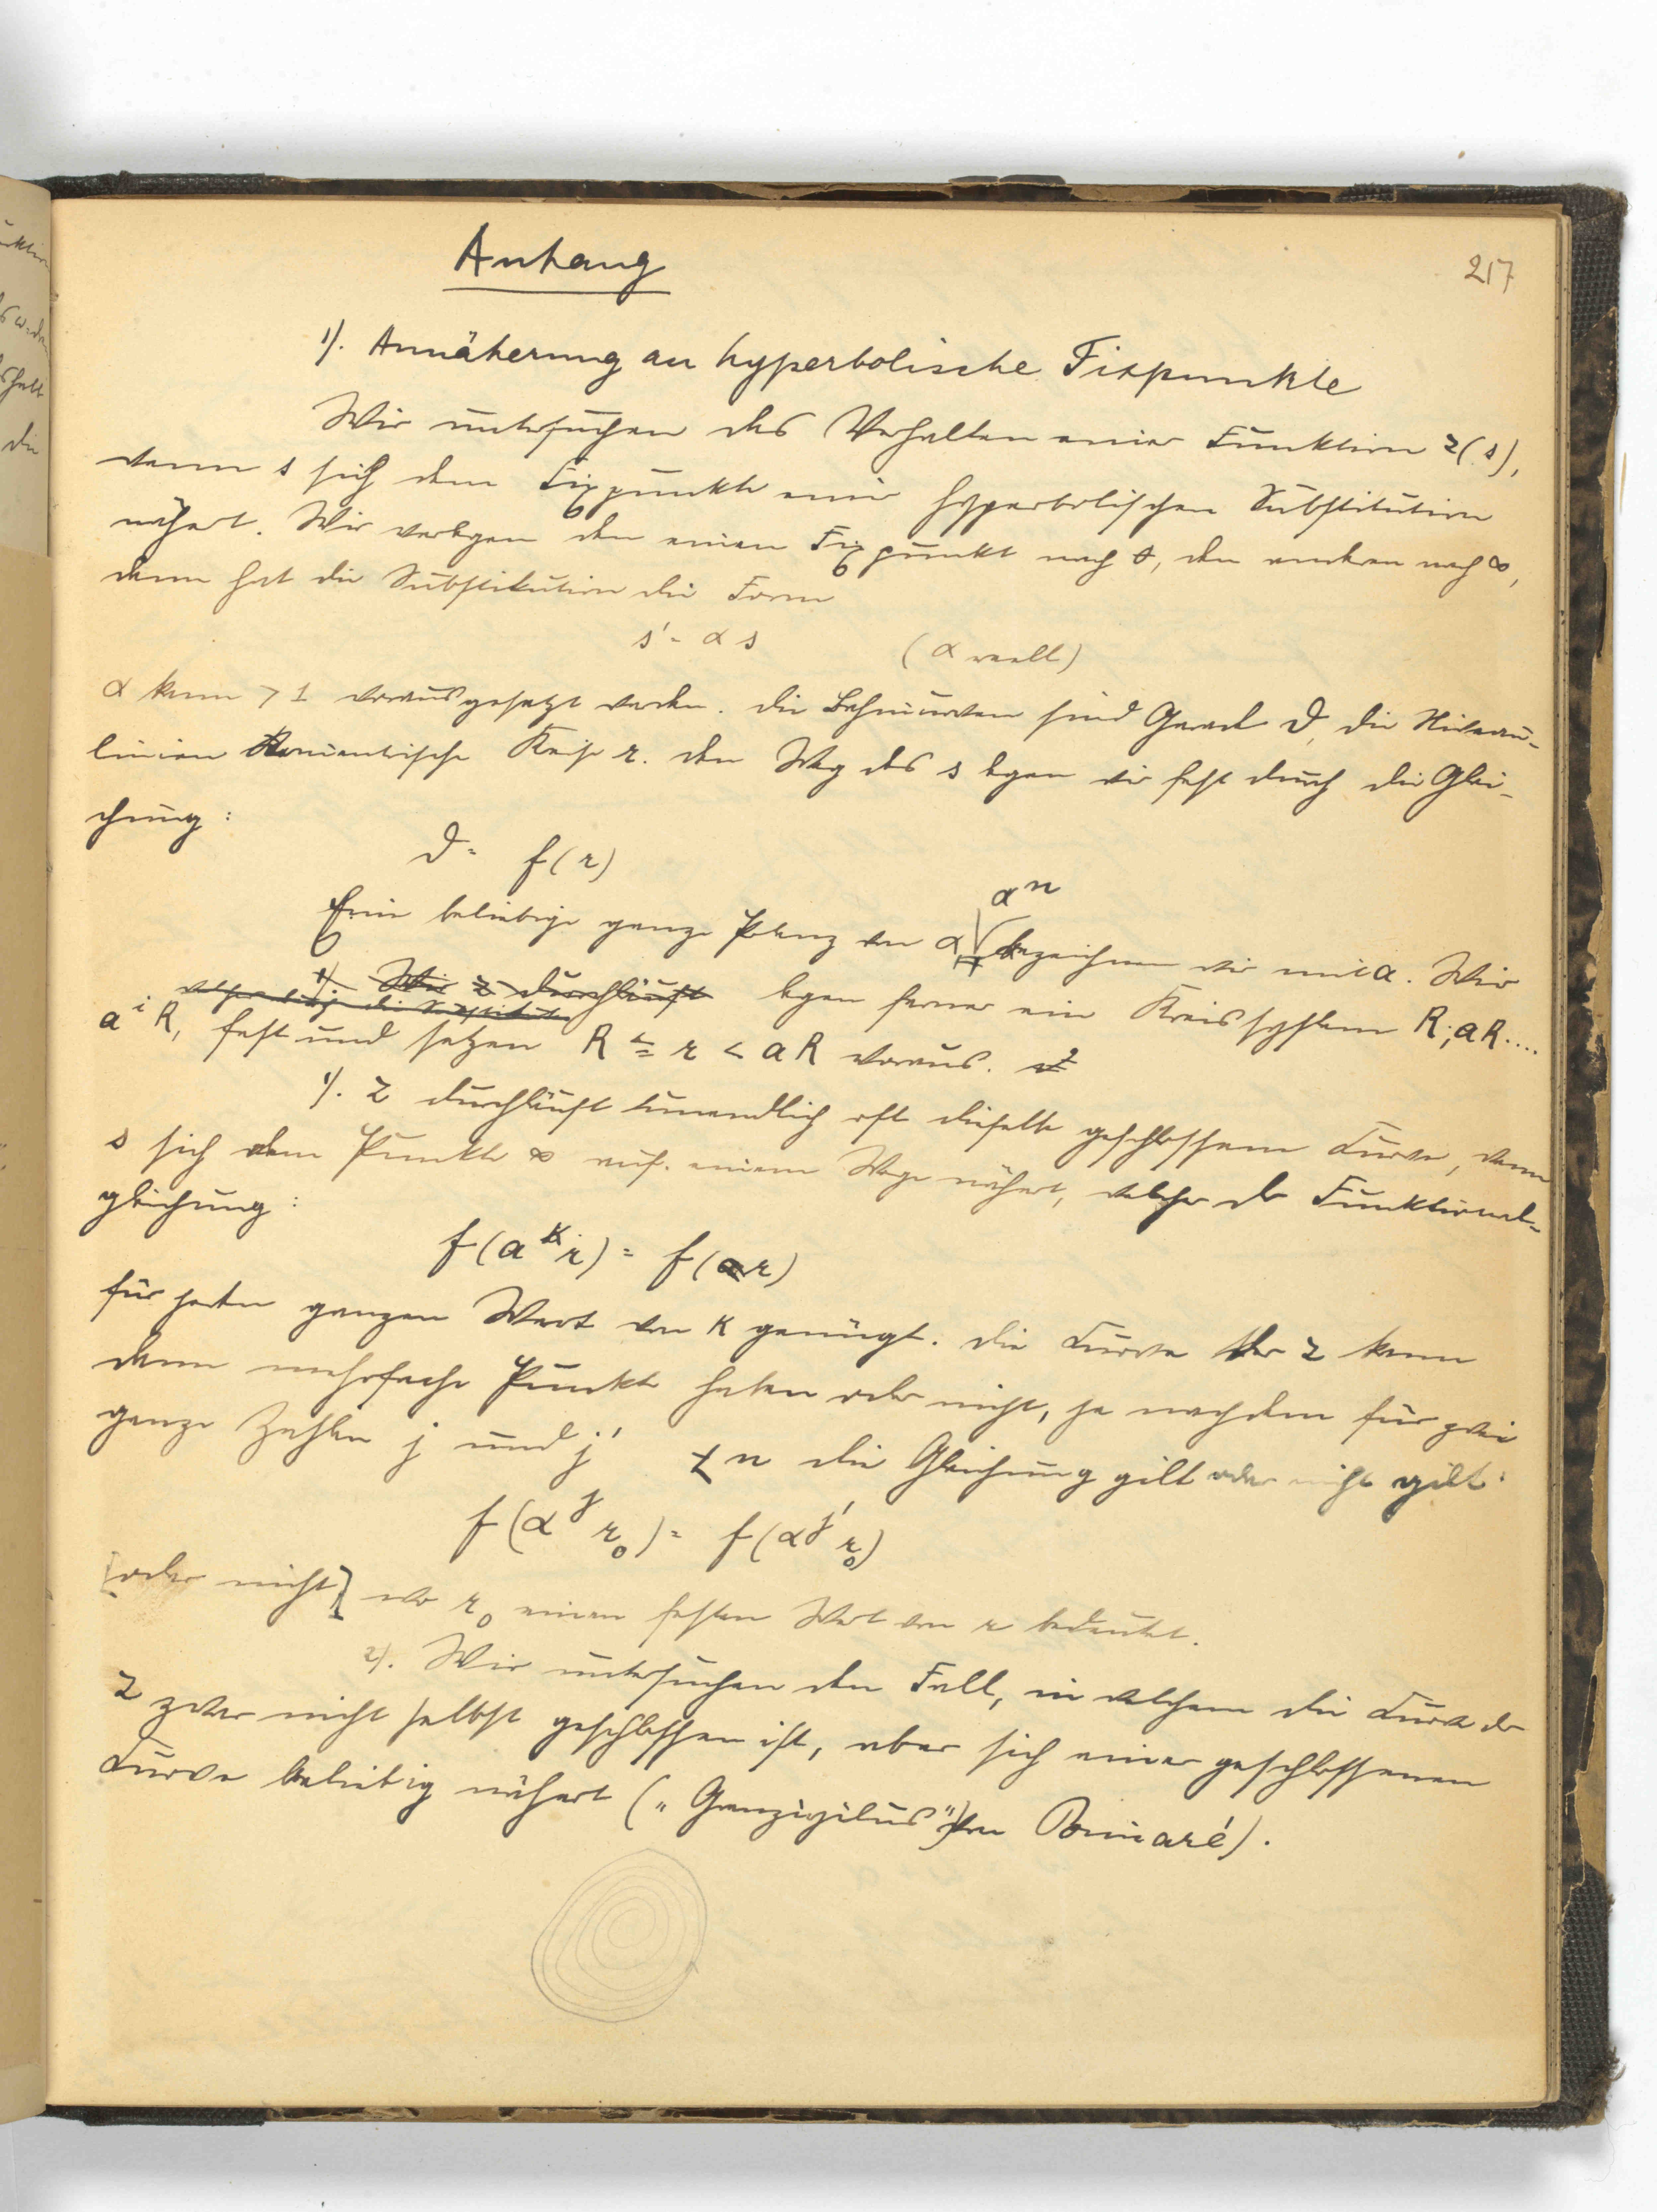 Anhang
217
1). Annäherung an hyperbolische Fixpunkte
Wir untersuchen das Verhalten einer Funktion z(s),
wenn s sich dem Fixpunkte einer hyperbolischen Substitution
nähert. Wir verlegen den einen Fixpunkt nach 0, den anderen nach ∞,
dann hat die Substitution die Form
s' = α s (α reell)
α kann > 1 vorausgesetzt werden. Die Bahnkurven sind Gerade ϑ, die Niveau-
linien konzentrische Kreise r. Den Weg des s legen wir fest durch die Glei-
chung:
ϑ = f(r)
Eine beliebige ganze Potenz von α αⁿ bezeichnen wir mit a. Wir
1). Wir z durchläuft legen ferner ein Kreissystem R, aR....
aⁱR, fest und setzen R ≦ r < aR voraus.
1). z durchläuft unendlich oft dieselbe geschlossene Kurve, wenn
s sich dem Punkte ∞ auf einem Wege nähert, welcher der Funktional-
gleichung:
f(aᴷ r) = f(r)
für jeden ganzen Wert von K genügt. Die Kurve der z kann
dann mehrfache Punkte haben oder nicht, je nachdem für zwei
ganze Zahlen j und j' < n die Gleichung gilt oder nicht gilt:
f(αʲ r₀) = f(αʲ' r₀)
[oder nicht] wo r₀ einen festen Wert von r bedeutet.
2). Wir untersuchen den Fall, in welchem die Kurve der
z zwar nicht selbst geschlossen ist, aber sich einer geschlossenen
Kurve beliebig nähert („Grenzzyklus" von Poincaré).